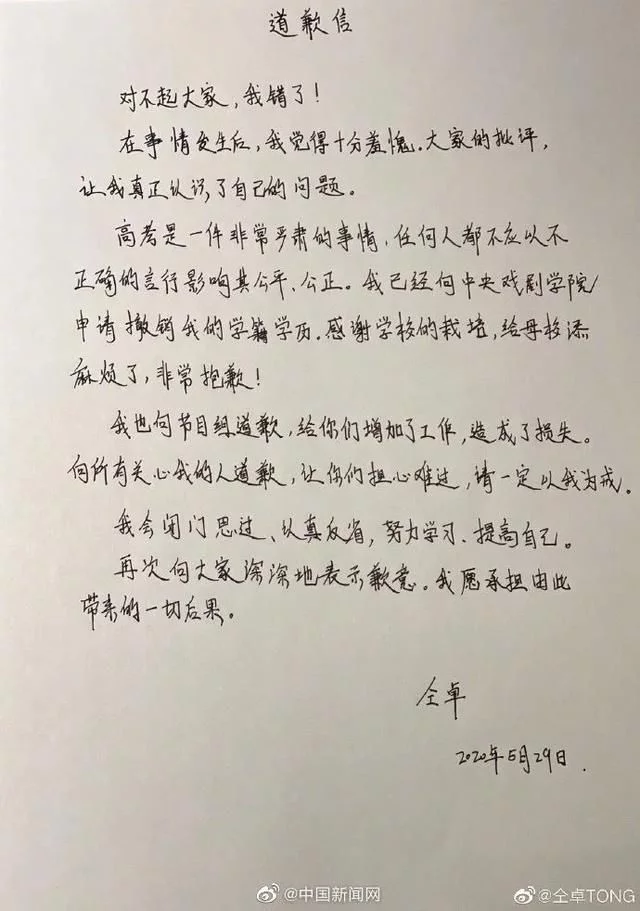 道歉信
对不起大家，我错了！
在事情发生后，我觉得十分羞愧。大家的批评，
让我真正认识了自己的问题。
高考是一件非常严肃的事情，任何人都不应以不
正确的言行影响其公平、公正。我已经向中央戏剧学院
申请撤销我的学籍学历。感谢学校的栽培，给母校添
麻烦了，非常抱歉！
我也向节目组道歉，给你们增加了工作，造成了损失。
向所有关心我的人道歉，让你们担心难过，请一定以我为戒。
我会闭门思过、认真反省，努力学习、提高自己。
再次向大家深深地表示歉意。我愿承担由此
带来的一切后果。
仝卓
2020年5月29日.
@中国新闻网
@仝卓TONG